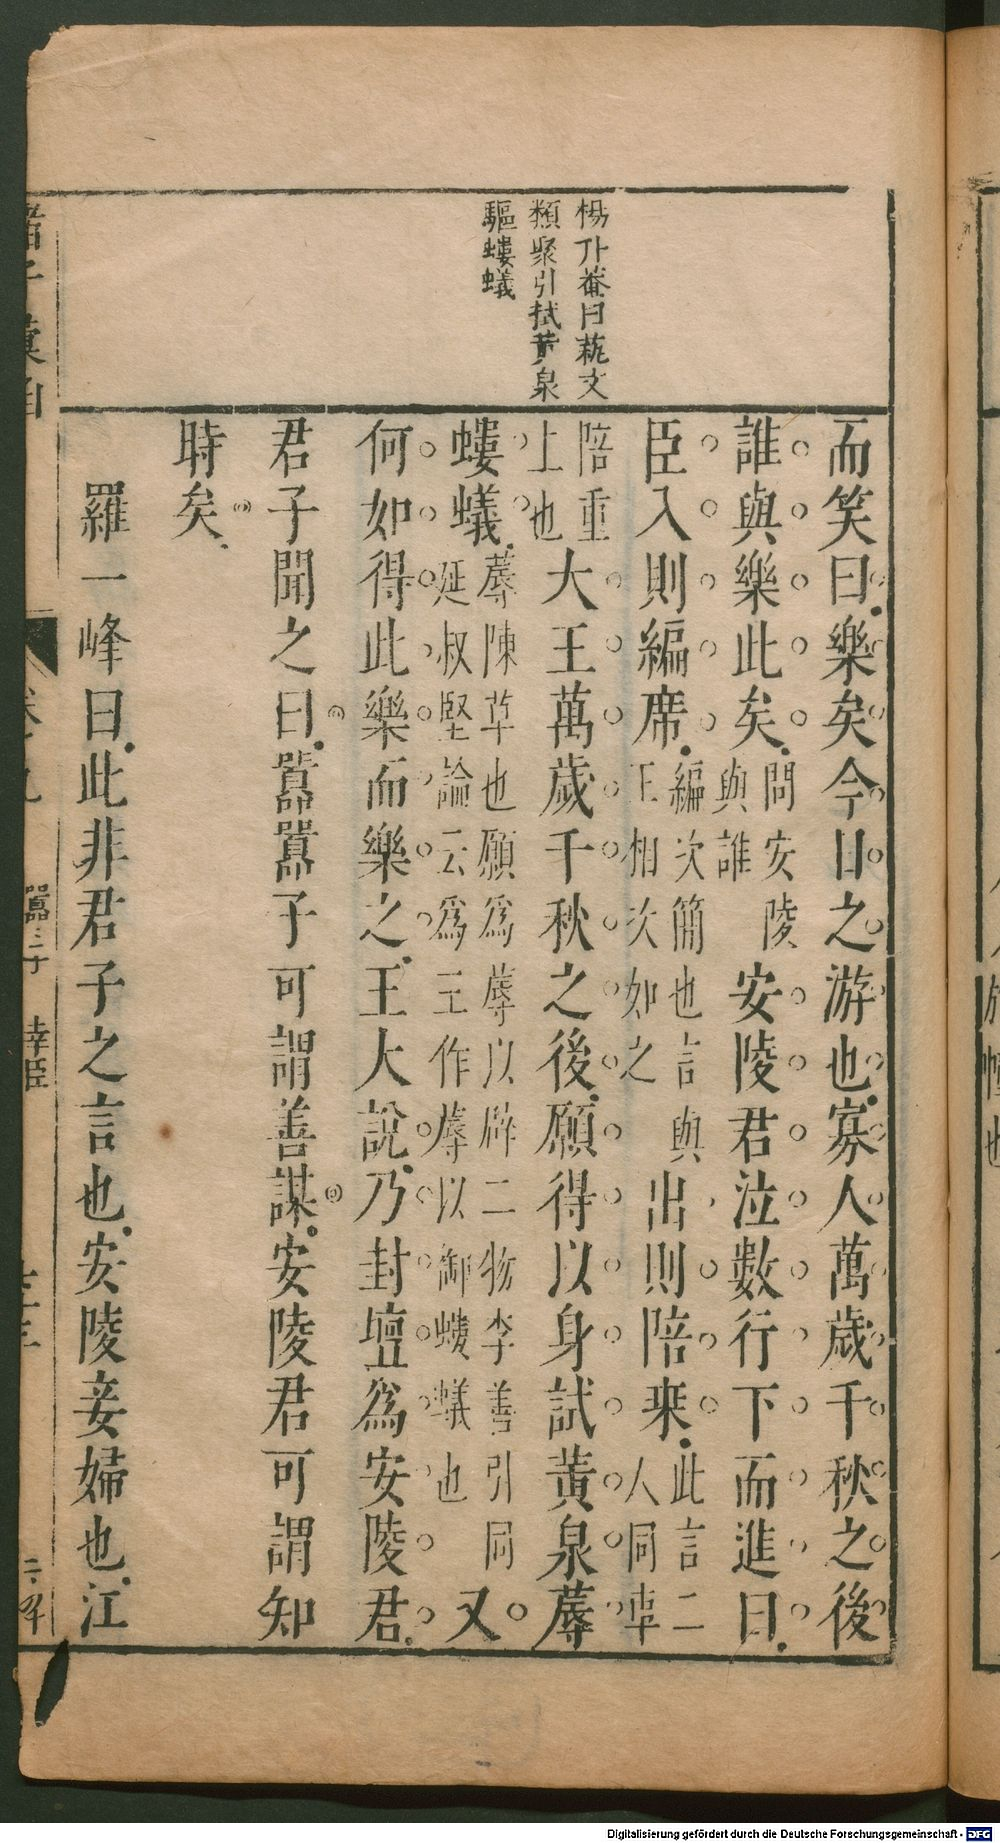 楊升菴曰蓺文
類聚引拭黃泉
驅螻蟻
而笑曰樂矣今日之游也寡人萬歲千秋之後
誰與樂此矣問安陵與誰安陵君泣數行下而進曰
臣入則編席編次簡也言與王相次如之出則陪乗此言二人同車
陪重上也大王萬歲千秋之後願得以身試黃泉蓐
螻蟻蓐陳草也願為蓐以辟二物李善引同延叔堅論云為王作蓐以御螻蟻也又
何如得此樂而樂之王大說乃封壇爲安陵君
君子聞之曰嚚嚚子可謂善謀安陵君可謂知
時矣
羅一峰曰此非君子之言也安陵妾婦也江
諸子彙函
卷之九
幸臣
Digitalisierung gefördert durch die Deutsche Forschungsgemeinschaft - DFG